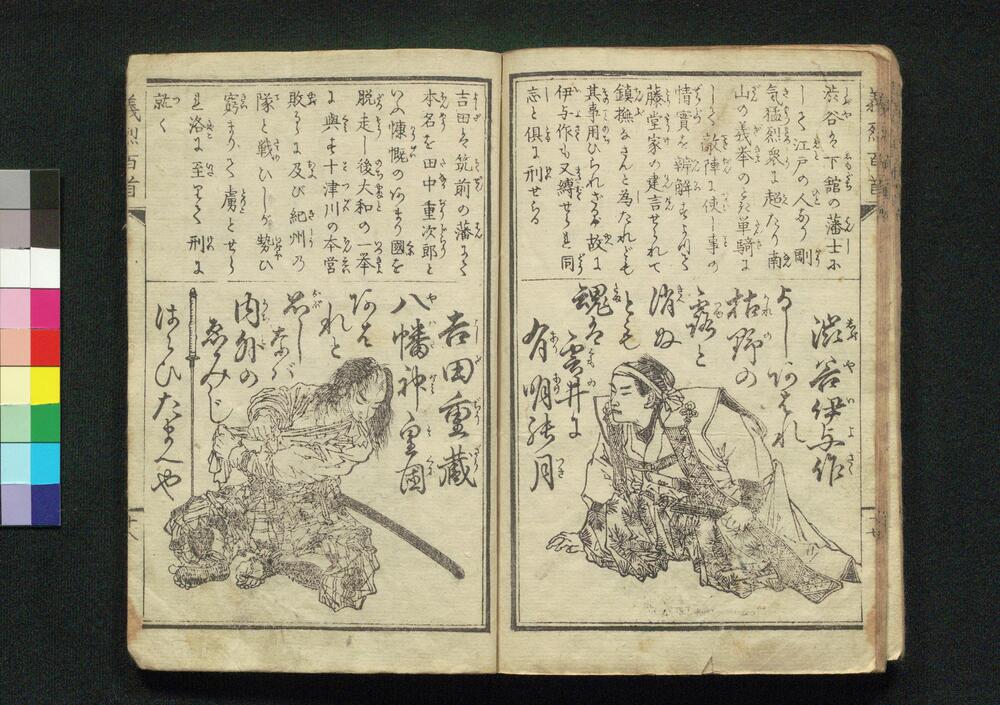 義烈百首
渋谷は下舘の藩士に
して江戸の人なり剛
気猛烈衆に超たり南
山の義挙のとき単騎に
して敵陣に使し事の
情実を辨解す
藤堂家の建言せられて
鎮撫なさんと為たれども
其事用ひられざる故に
伊与作も又縛せられ同
志と倶に刑せらる
渋谷伊与作
よしあはれ
枯野の
露と
消ぬ
とも
魂は雲井に
有明の月
十七
吉田は筑前の藩にて
本名を田中重次郎と
いふ慷慨のあまり國を
脱走し後大和の一挙
に與す十津川の本営
敗るに及び紀州の
隊と戦ひしが勢ひ
窮まりて虜とせら
れ洛に至りて刑に
就く
吉田重蔵
八幡神皇国
あはれと
思し
なバ
内外の
ゑみじ
はらひたまへや
十八
義烈百首